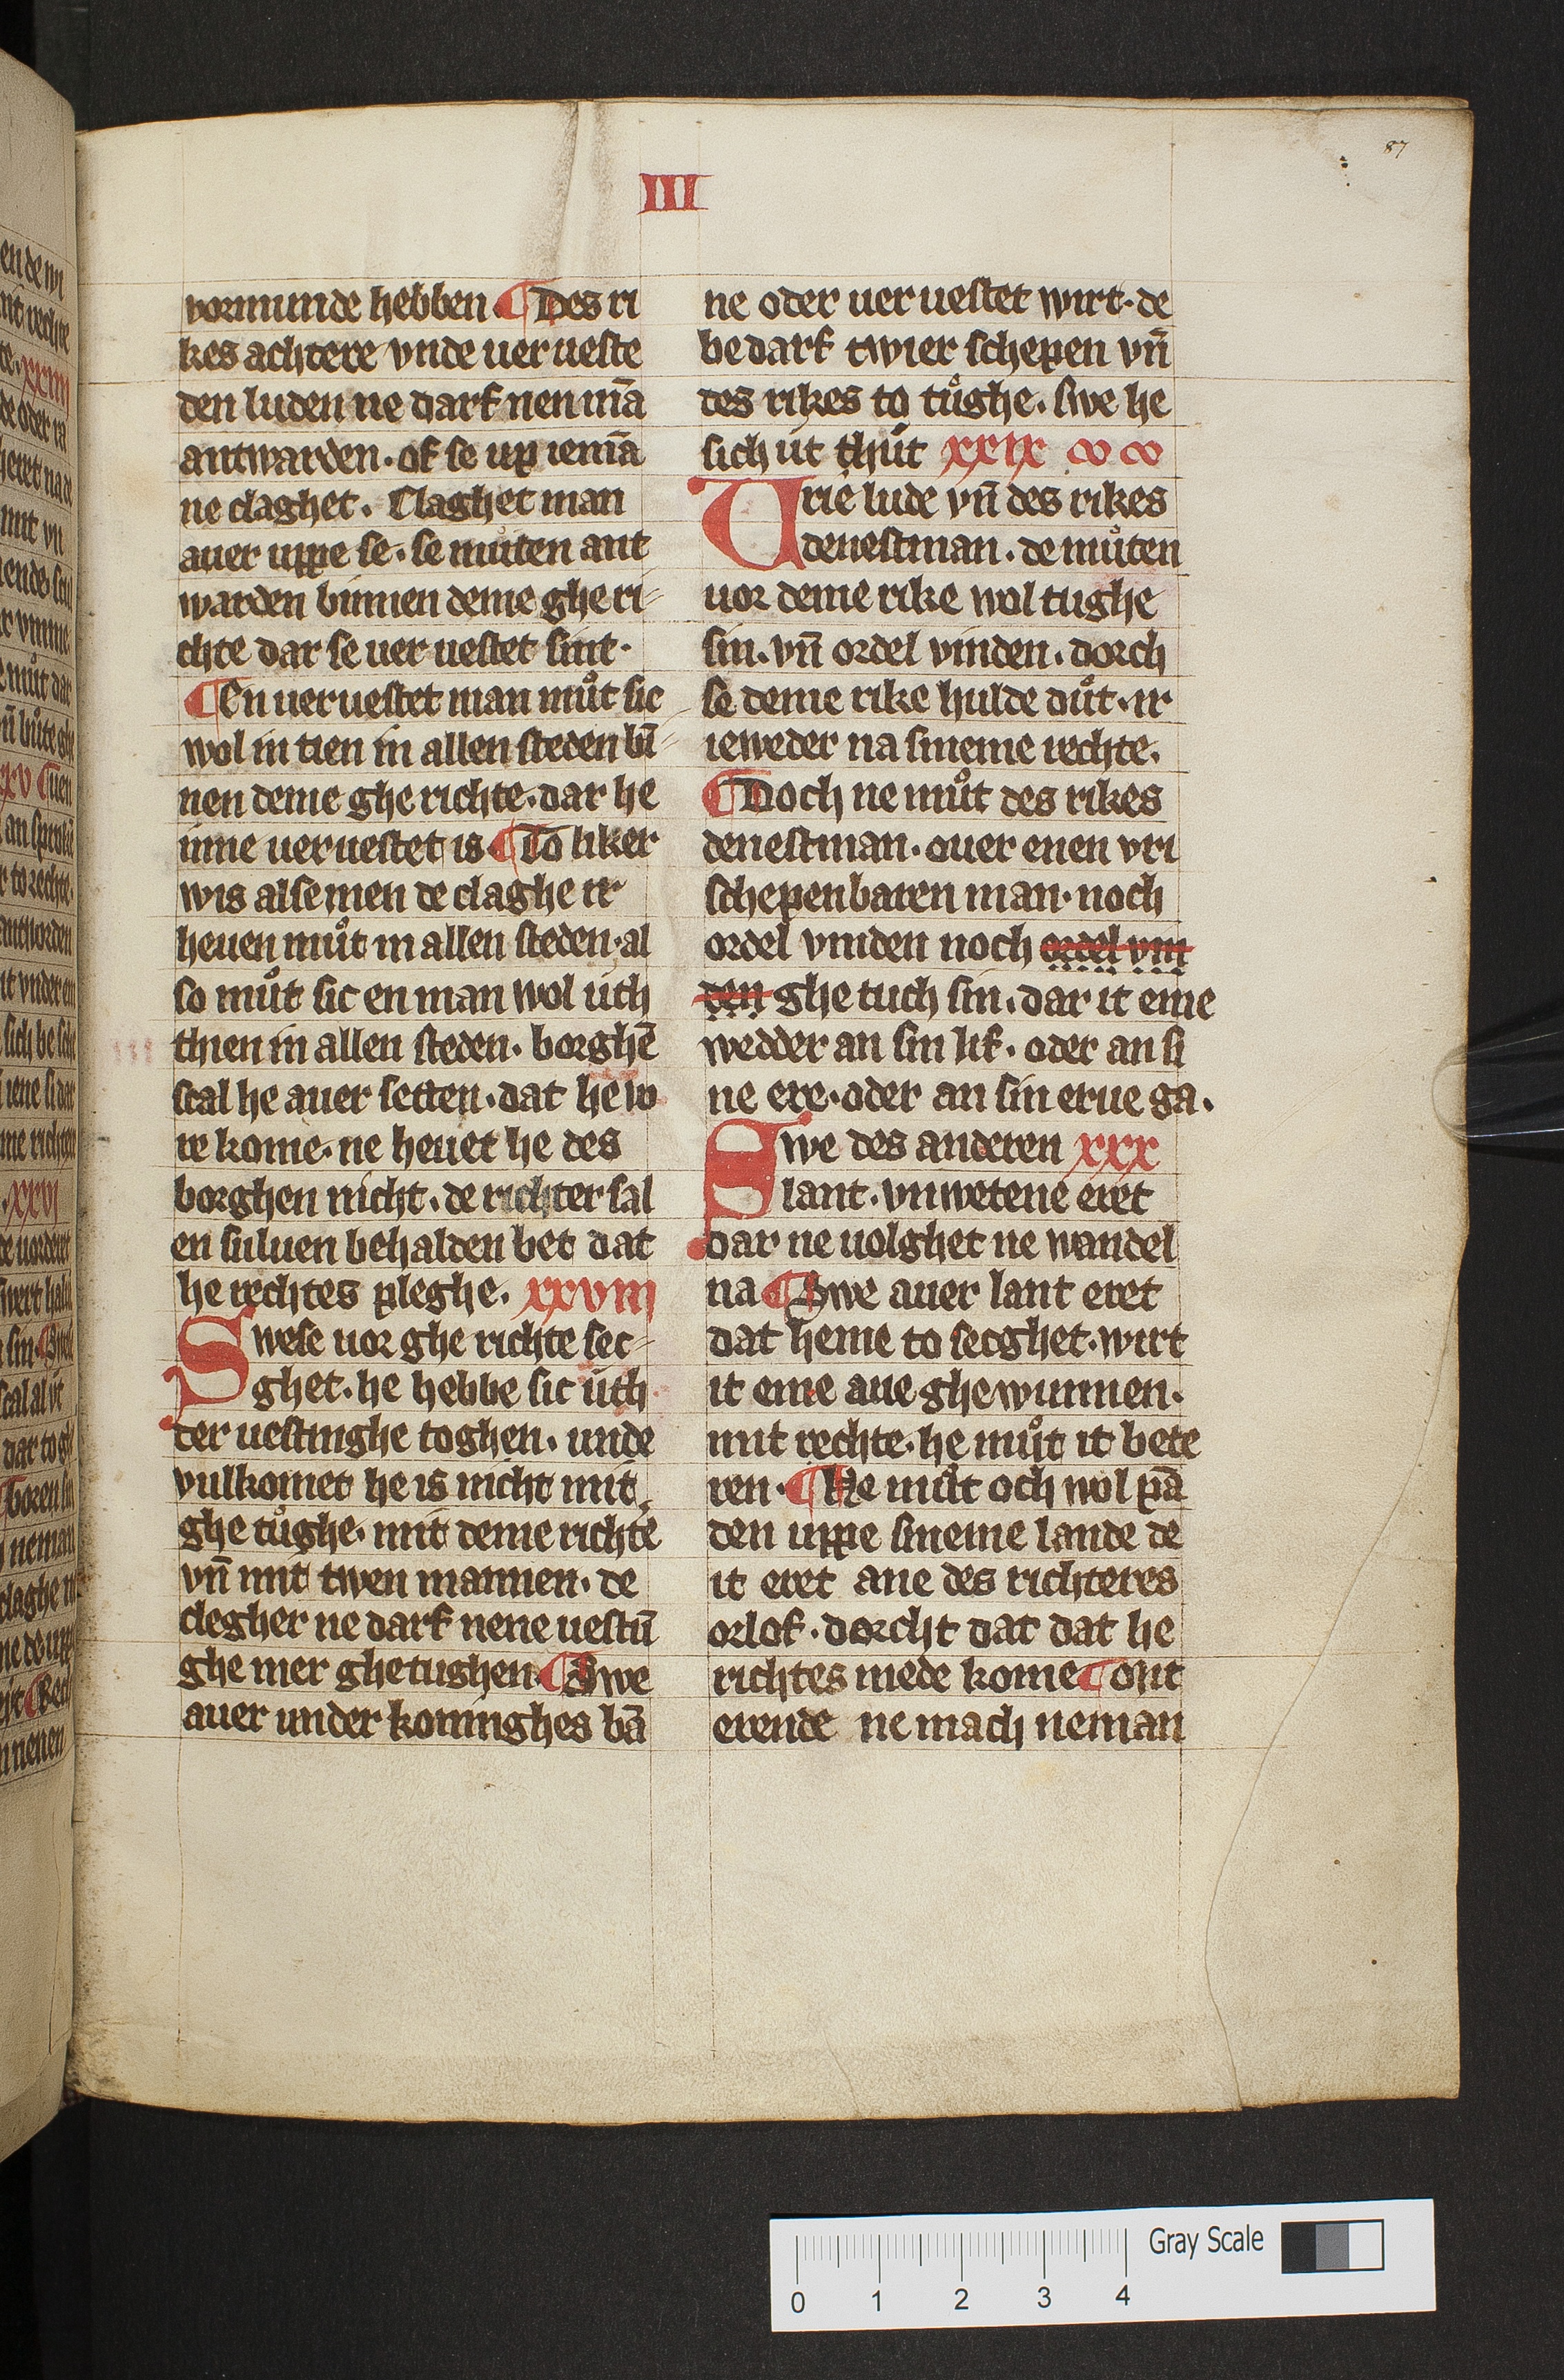 87
III
vormunde hebben. ¶ Des ri
kes achtere vnde uer ueste
den luden ne darf nen mā
antwarden. of se up iemā
ne claghet. Claghet man
auer uppe se. se muͦten ant
warden binnen deme ghe ri-
chte dar se uer uestet sint.
¶ En uer uestet man muͦt sic
wol in tien in allen steden bī-
nen deme ghe richte. dar he
inne uer uestet is. ¶ To liker
wis alse men de claghe ir
heuen muͦt in allen steden. al
so muͦt sic en man wol uͦth
thien in allen steden. borghē
scal he auer setten. dat he vo
re kome. ne heuet he des
borghen nicht. de richter sal
en suluen behalden bet dat
he rechtes pleghe. xxviii
Swese uor ghe richte sec-
ghet. he hebbe sic uth
der uestinghe toghen. unde
vulkomet he is nicht mit
ghe tuͦghe. mit deme richtē
vn̄ mit twen mannen. de
clegher ne darf nene uestū
ghe mer ghetughen. ¶ Swe
auer under koninghes bā
ne oder uer uestet wirt. de
bedarf twier schepen vn̄
des rikes to tuͦghe. swe he
sich ut thút xxix
Vrie lude vn̄ des rikes
denestman. de muͦten
uor deme rike wol tughe
sin. vn̄ ordel vinden. dorch
se deme rike hulde duͦt. ir
ieweder na sineme rechte.
¶ Doch ne muͦt des rikes
denestman. ouer enen vri
schepenbaren man. noch
ordel vinden noch ordel vin
den ghe tuch sin. dar it eme
wedder an sin lif. oder an si
ne ere. oder an sin erue ga.
Swe des anderen xxx
lant. vnwetene eret
dar ne uolghet ne wandel
na ¶ Swe auer lant eret
dat heme to secghet. wirt
it eme aue ghewunnen.
mit rechte. he muͦt it bete
ren. ¶ He muͦt och wol pā
den uppe sineme lande de
it eret ane des richteres
orlof. dorcht dat dat he
richtes mede kome ¶ Ont
erende ne mach neman
Gray Scale
0 1 2 3 4